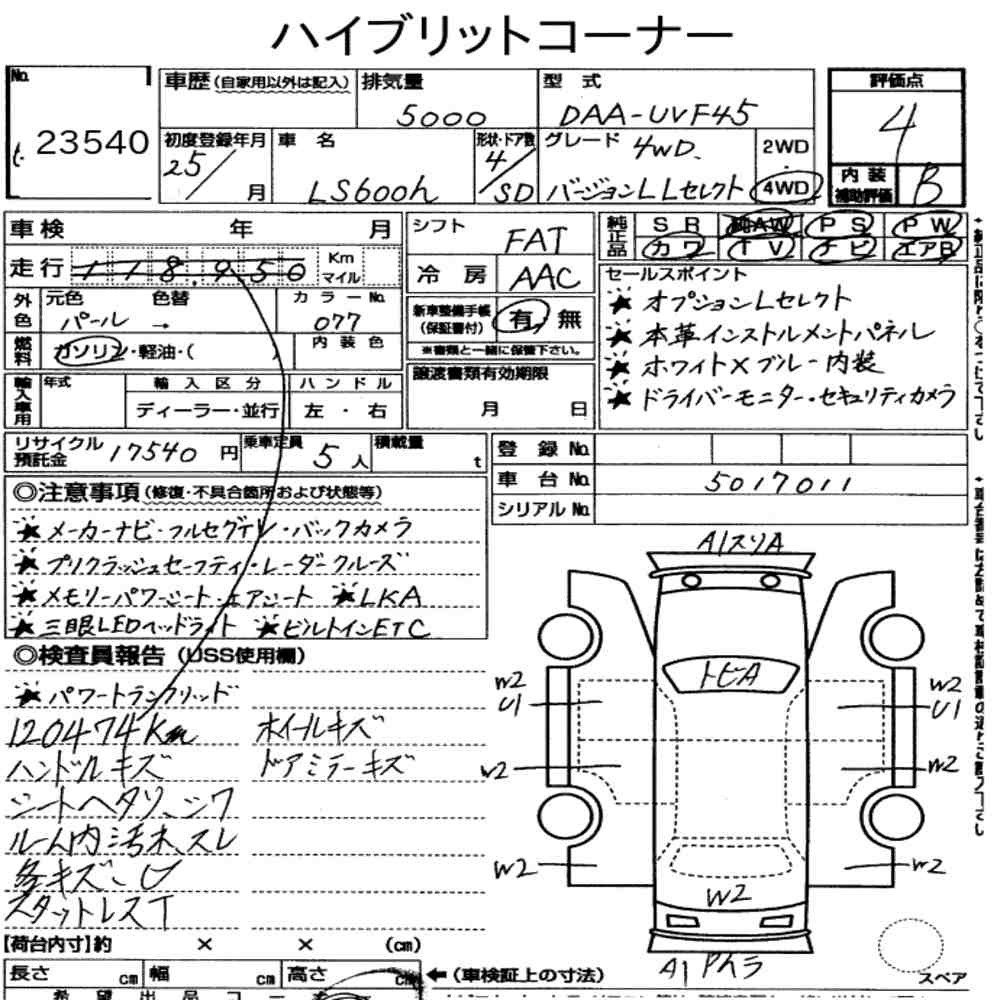 ハイブリットコーナー
No. 23540
車歴(自家用以外は記入) 排気量 5000 型式 DAA-UVF45
評価点 4
初度登録年月 25/ 月 車名 LS600h 形状・ドア数 4/SD グレード 4WD. バージョンLLセレクト 2WD 4WD
内装補助評価 B
車検 年 月
走行 118,950 Km マイル
外色 元色 パール → 色替 カラーNo. 077
燃料 ガソリン・軽油・( ) 内装色
輸入車用 年式 輸入区分 ハンドル
ディーラー・並行 左・右
シフト FAT
冷房 AAC
新車整備手帳(保証書付) 有 無
※書類と一緒に保管下さい。
譲渡書類有効期限
月 日
純正品 SR 純AW PS PW
カワ TV ナビ エアB
セールスポイント
★オプションLセレクト
★本革インストルメントパネル
★ホワイト×ブルー内装
★ドライバーモニター・セキュリティカメラ
リサイクル預託金 17540円 乗車定員 5人 積載量 t
登録No.
車台No. 5017011
シリアルNo.
◎注意事項(修復・不具合箇所および状態等)
★メーカーナビ・フルセグTV・バックカメラ
★プリクラッシュセーフティ・レーダークルーズ
★メモリーパワーシート・エアシート ★LKA
★三眼LEDヘッドライト ★ビルトインETC
◎検査員報告(USS使用欄)
★パワートランクリッド
120474Km ホイールキズ
ハンドルキズ ドアミラーキズ
シートヘタリ、シワ
ルーム内汚れ、スレ
スタットレスT
A1スリA
トビA
W2 U1
W2 U1
W2
W2
W2
W2
W2
A1
スペア
【荷台内寸】約 × × (cm)
長さ cm 幅 cm 高さ cm
←(車検証上の寸法)